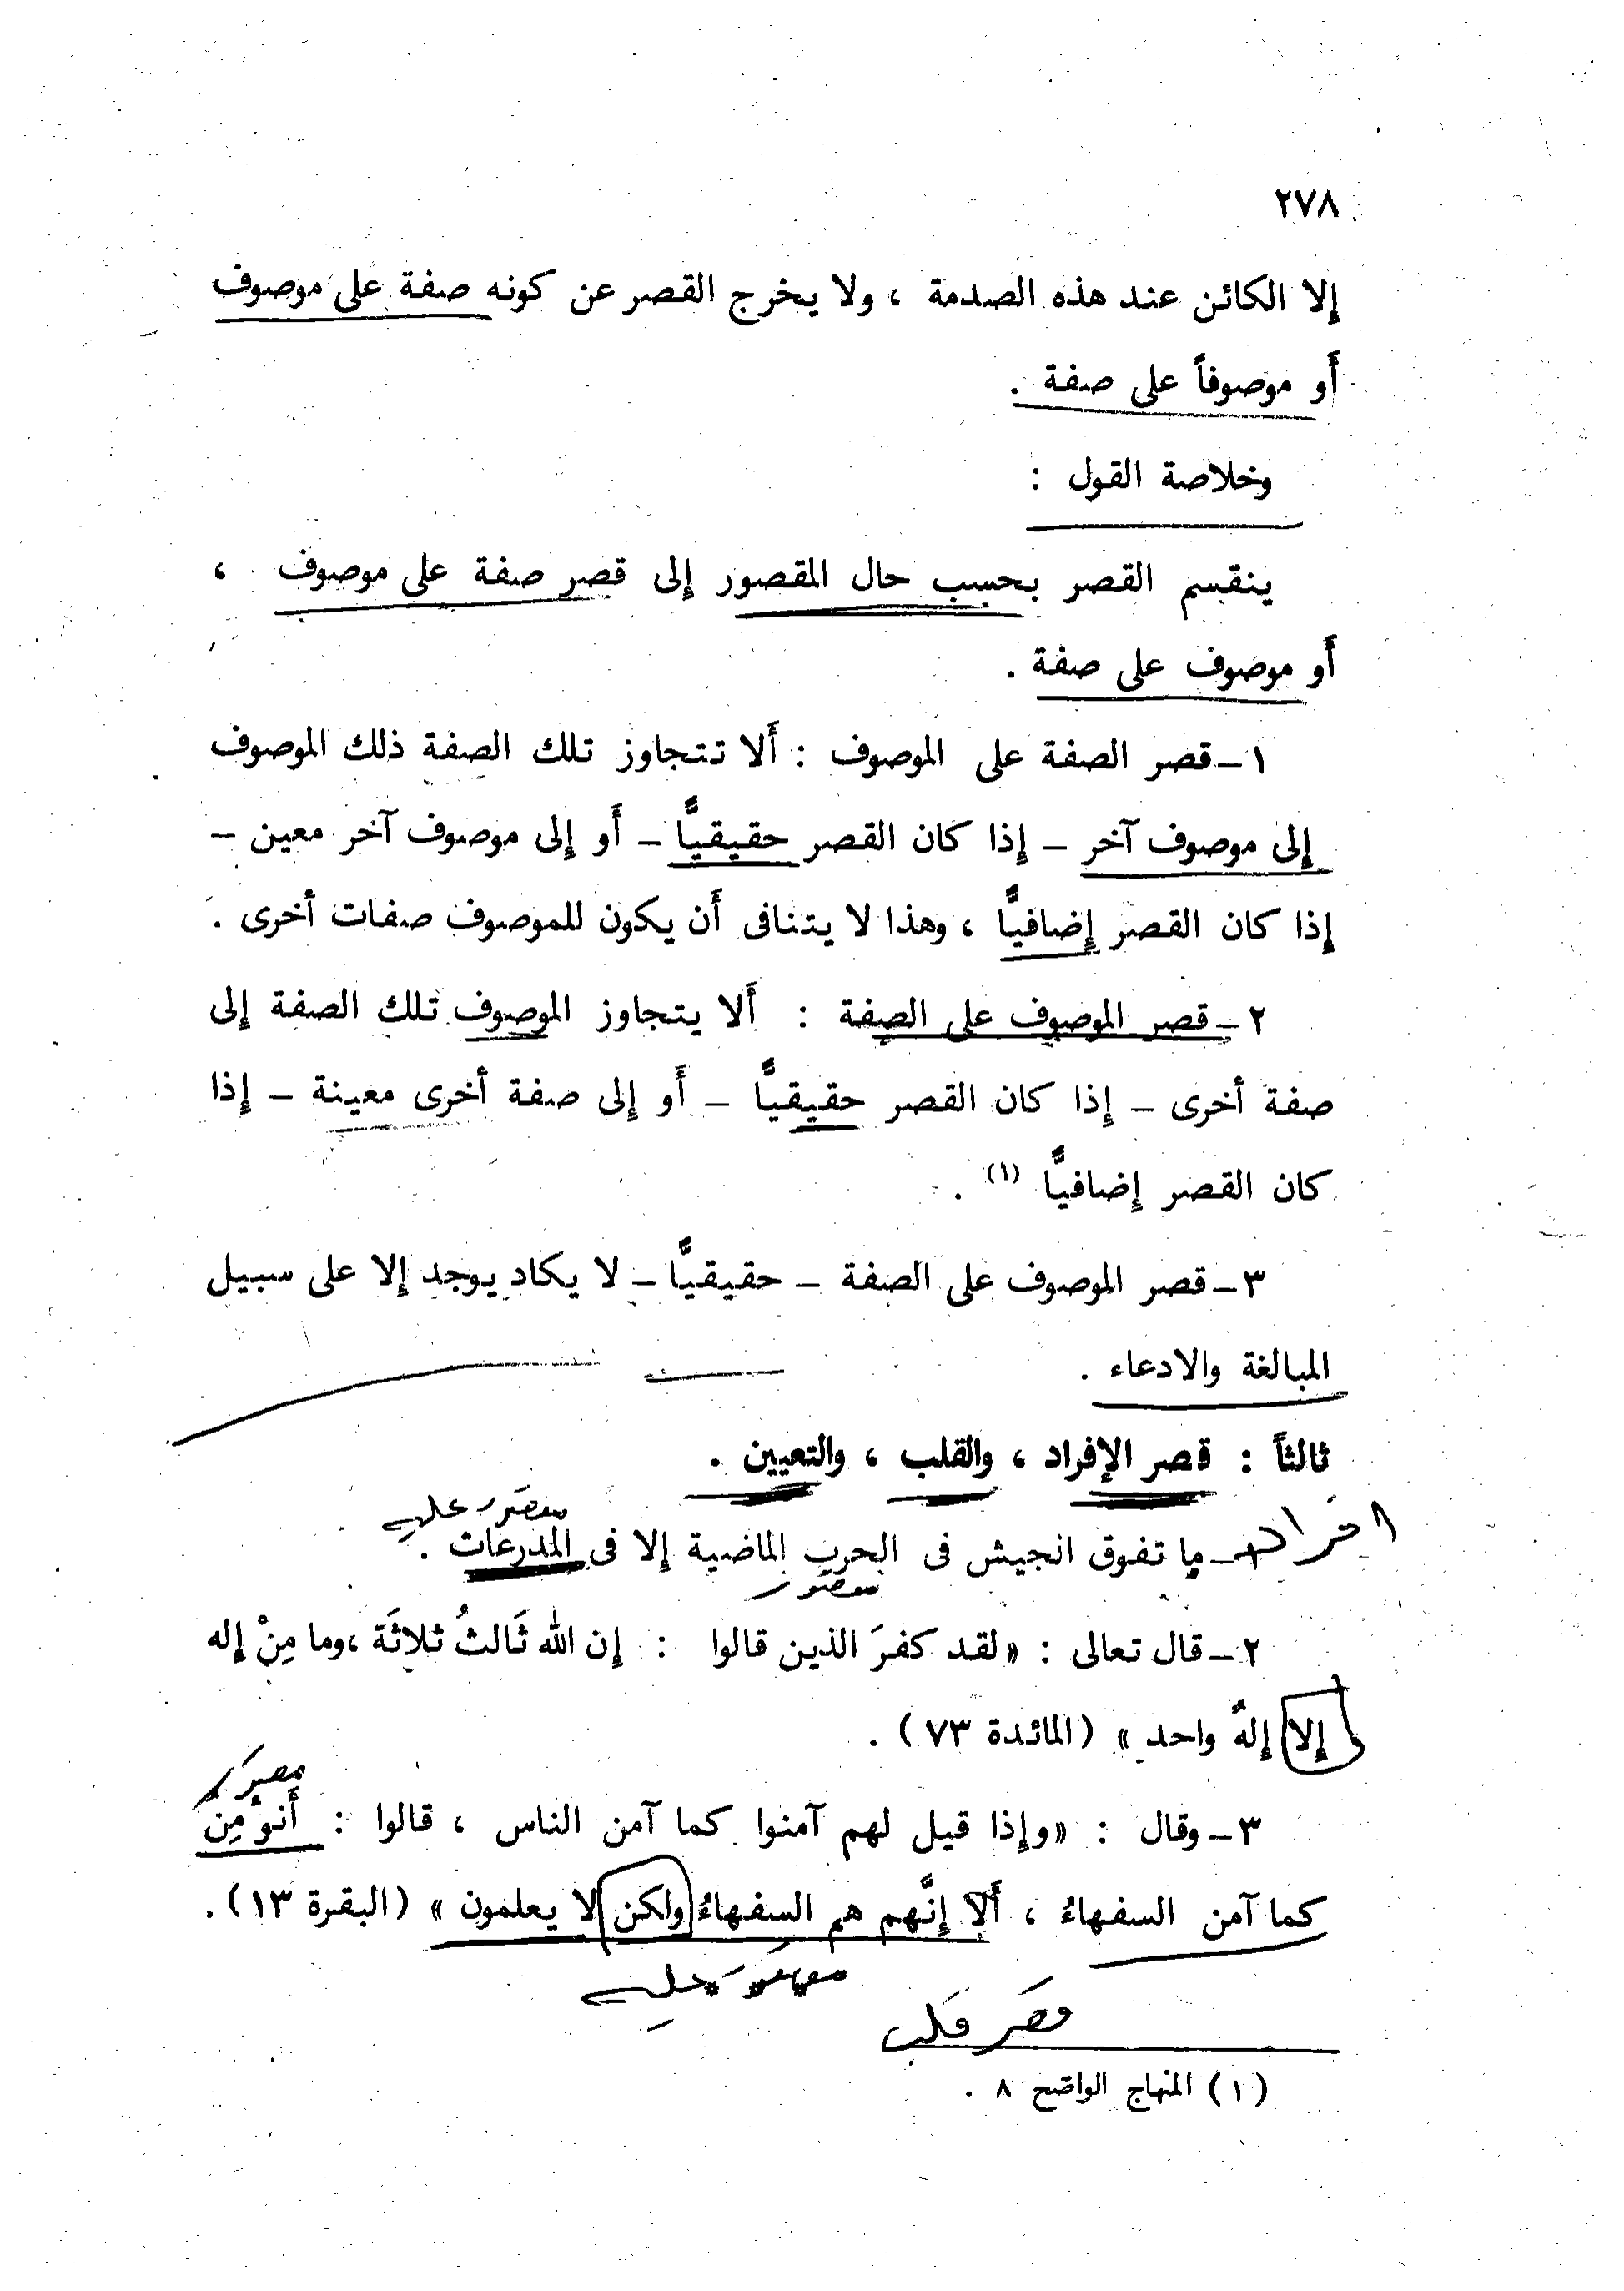 ٢٧٨
إلا الكائن عند هذه الصدمة ، ولا يخرج القصر عن كونه صفة على موصوف
أو موصوفاً على صفة .
وخلاصة القول :
ينقسم القصر بحسب حال المقصور إلى قصر صفة على موصوف ،
أو موصوف على صفة .
١ – قصر الصفة على الموصوف : ألا تتجاوز تلك الصفة ذلك الموصوف
إلى موصوف آخر – إذا كان القصر حقيقيًّا – أو إلى موصوف آخر معين –
إذا كان القصر إضافيًّا ، وهذا لا يتنافى أن يكون للموصوف صفات أخرى .
٢ – قصر الموصوف على الصفة : ألا يتجاوز الموصوف تلك الصفة إلى
صفة أخرى – إذا كان القصر حقيقيًّا – أو إلى صفة أخرى معينة – إذا
كان القصر إضافيًّا (١) .
٣ – قصر الموصوف على الصفة – حقيقيًّا – لا يكاد يوجد إلا على سبيل
المبالغة والادعاء .
ثالثاً : قصر الإفراد ، والقلب ، والتعيين .
مقصور عليه
افراد – ما تفوق الجيش فى الحرب الماضية إلا فى المدرعات .
مقصور
٢ – قال تعالى : « لقد كفرَ الذين قالوا : إن الله ثَالثُ ثلاثَة ، وما مِنْ إله
إلا إلهٌ واحد » (المائدة ٧٣) .
٣ – وقال : « وإذا قيل لهم آمنوا كما آمن الناس ، قالوا : أَنؤْمِنُ
كما آمن السفهاءُ ، أَلا إنَّهم هم السفهاءُ ولكن لا يعلمون » (البقرة ١٣) .
مقصور عليه
قصر قلب
(١) المنهاج الواضح ٨ .